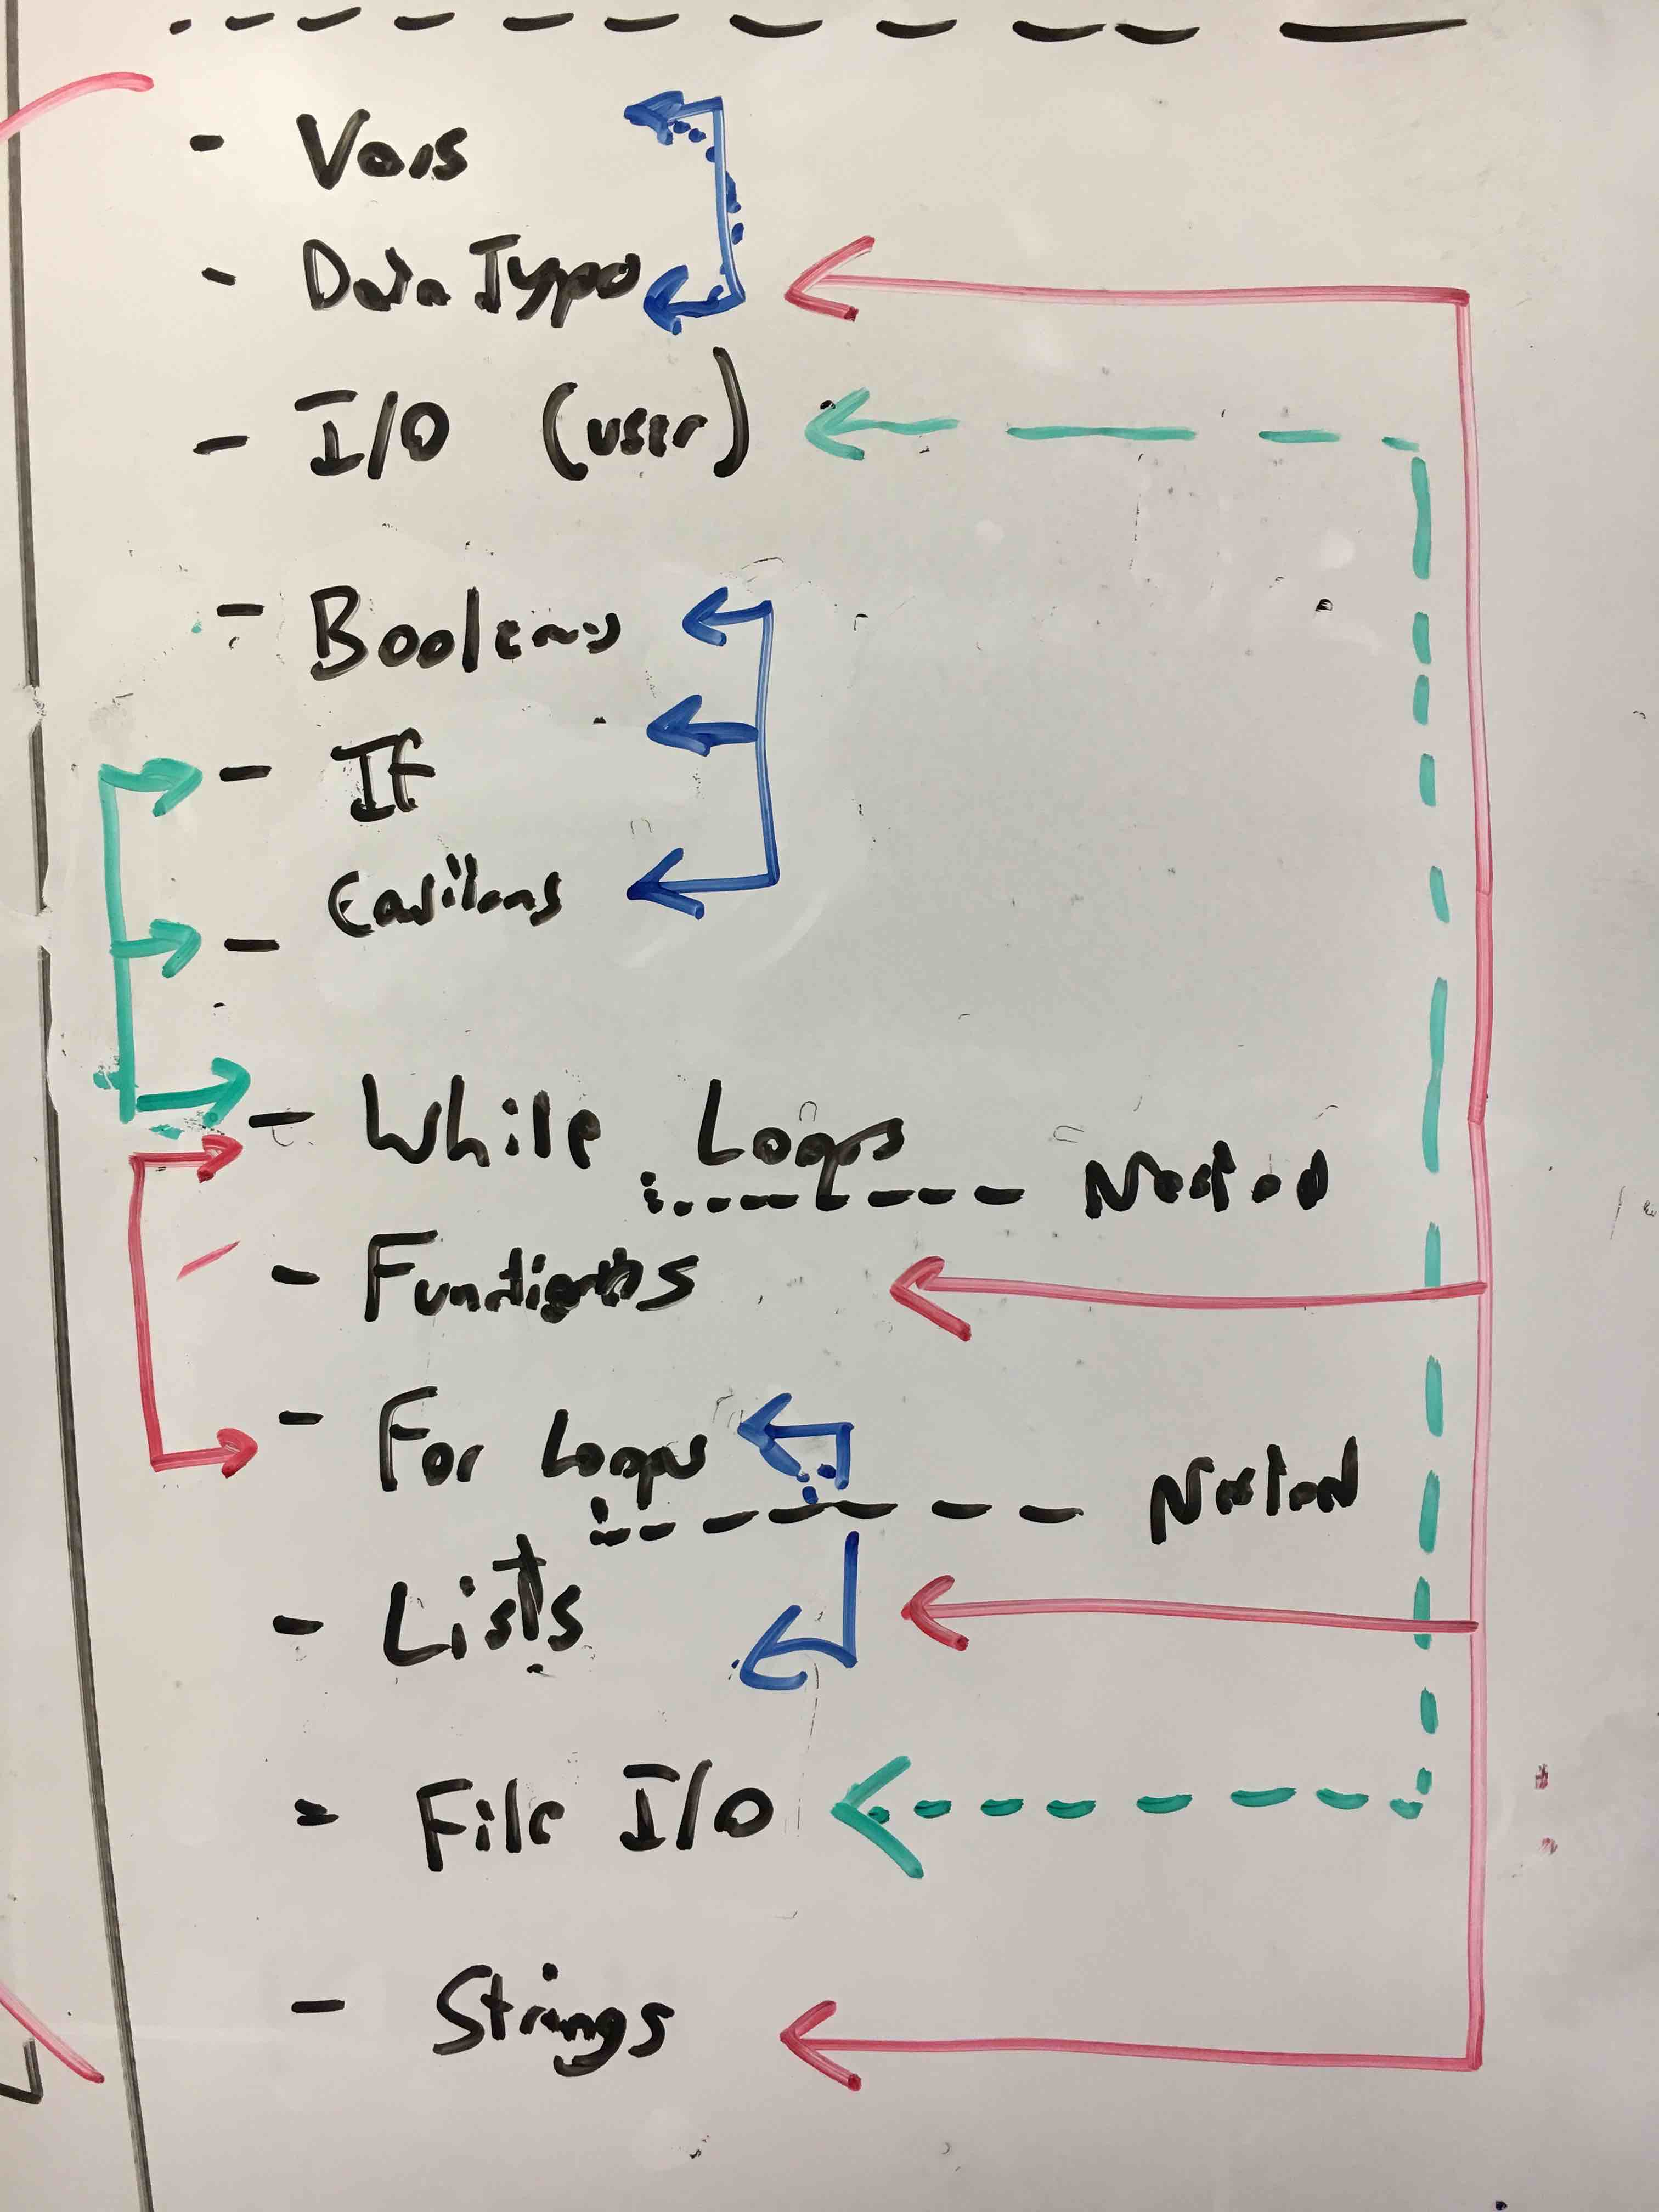 - Vars
- Data Type
- I/O (user)
- Booleans
- If
-
- While Loops
Nested
- Functions
- For Loops
Nested
- Lists
- File I/O
- Strings